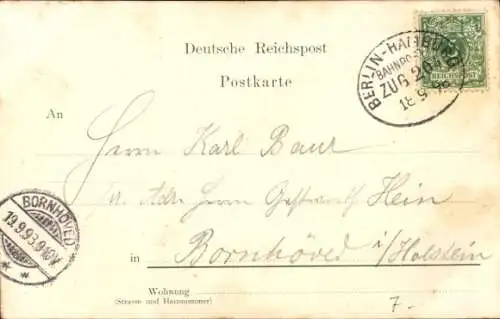 Deutsche Reichspost
Postkarte
BERLIN-HAMBURG
BAHNPOST
ZUG 20
18 9
REICHSPOST
An
Herrn Karl Baur
Adr. Herrn Gastwirth Hein
BORNHÖVED
19.9.93.
in Bornhöved i/Holstein
Wohnung
(Strasse und Hausnummer)
7.-